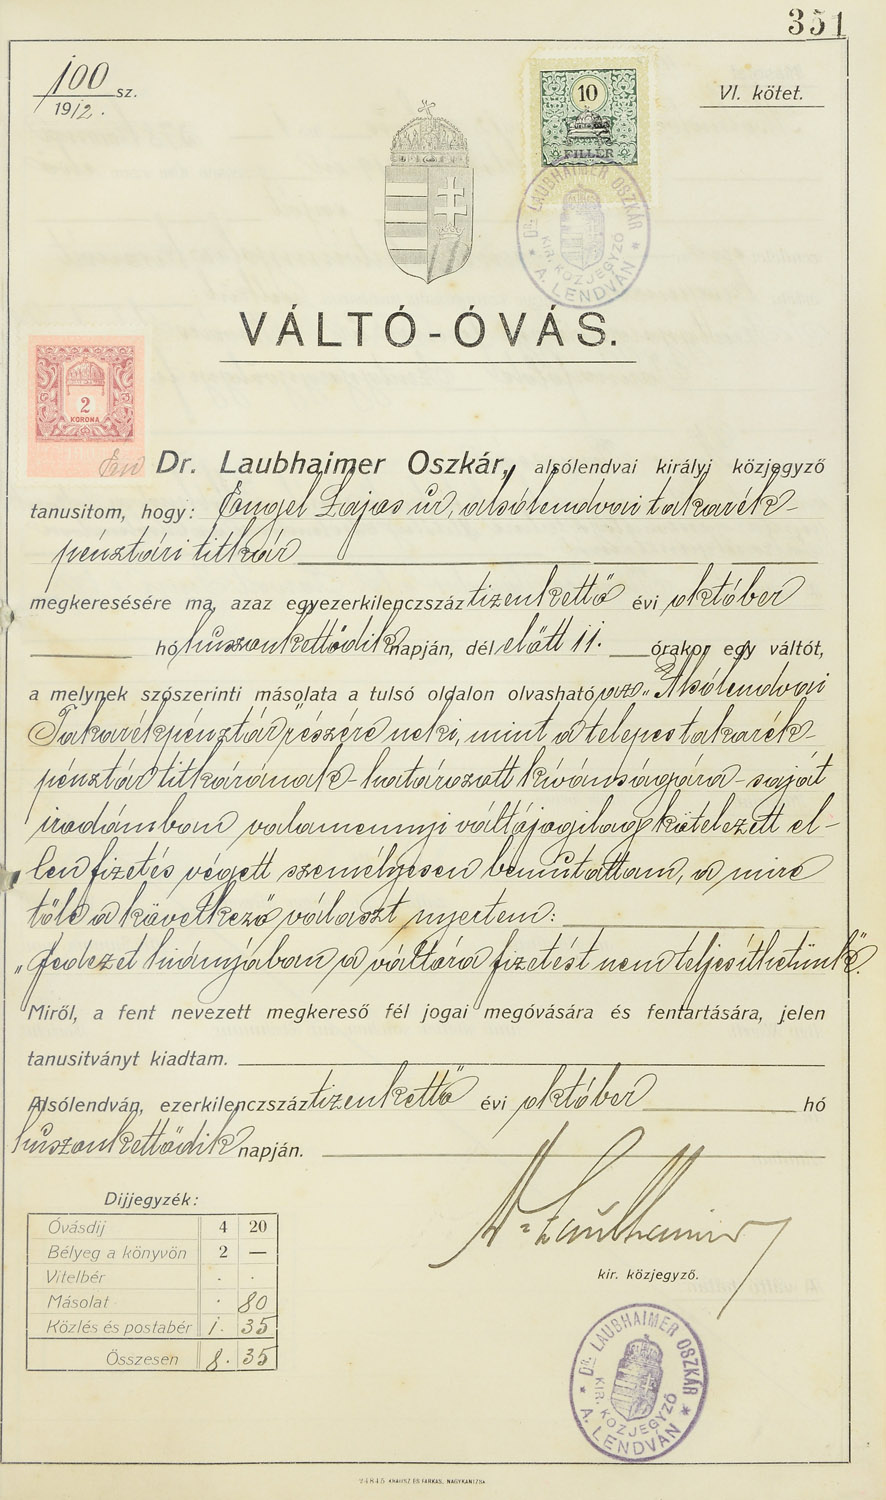 351
100 sz.
1912.
VI. kötet.
10
FILLÉR
DR. LAUBHAIMER OSZKÁR
KIR. KÖZJEGYZŐ
* A. LENDVÁN *
VÁLTÓ-ÓVÁS.
2
KORONA
Én Dr. Laubhaimer Oszkár, alsólendvai királyi közjegyző
tanusitom, hogy: Engel Lajos úr, alsólendvai takarék-
pénztári titkár
megkeresésére ma, azaz egyezerkilenczszáz tizenkettő évi október
hó huszonkettődik napján, dél előtt 11. órakor egy váltót,
a melynek szószerinti másolata a tulsó oldalon olvasható, az „Alsólendvai
Takarékpénztár" részére neki, mint a telepes takarék-
pénztár titkárának - határozott kívánságára - saját
irodámban valamennyi váltójogilag kötelezett el-
len fizetés végett személyesen bemutattam, a mire
tőle a következő választ nyertem:
„Fedezet hiányjában a váltóra fizetést nem teljesíthetünk".
Miről, a fent nevezett megkereső fél jogai megóvására és fentartására, jelen
tanusitványt kiadtam.
Alsólendván, ezerkilenczszáz tizenkettő évi október hó
huszonkettődik napján.
Dr. Laubhaimer
kir. közjegyző.
Dijjegyzék:
Óvásdij 4 20
Bélyeg a könyvön 2 —
Vitelbér . .
Másolat . 80
Közlés és postabér 1. 35
Összesen 8. 35
DR. LAUBHAIMER OSZKÁR
KIR. KÖZJEGYZŐ
* A. LENDVÁN *
24845 KRAUSZ ÉS FARKAS, NAGYKANIZSA